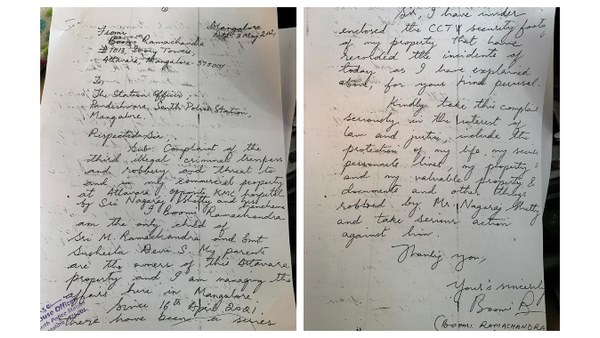 From:
Boomi Ramachandra
# 701B, Ivory Towers
Attavara, Mangalore - 575001
Mangalore
Date 3 May 2021
To,
The Station Officer
Pandeshwara, South Police Station,
Mangalore.
Respected Sir,
Sub: Complaint of the
third illegal criminal trespass
and robbery and threat to
and in my commercial property
at Attavara, opposite KMC hospital
by Sri Nagaraj Shetty and
I Boomi Ramachandra
am the only child of
Sri M. Ramachandra and Smt
Susheela Devi S. My parents
are the owners of this Attavara
property and I am managing the
affairs here in Mangalore.
Since 16th April 2021.
there have been a series
Sir, I have under
enclosed the CCTV security foota
of my property that have
recorded the incidents of
today as I have explained
above, for your kind perusal.
Kindly take this complai
seriously in the interest of
law and justice, include the
protection of my life my secu
personnels lives, my property
and my valuable property &
documents and other things
robbed by Mr Nagaraj Shetty
and take serious action
against him.
Thanking you,
Your's sincerely
Boomi R
(BOOMI RAMACHANDRA